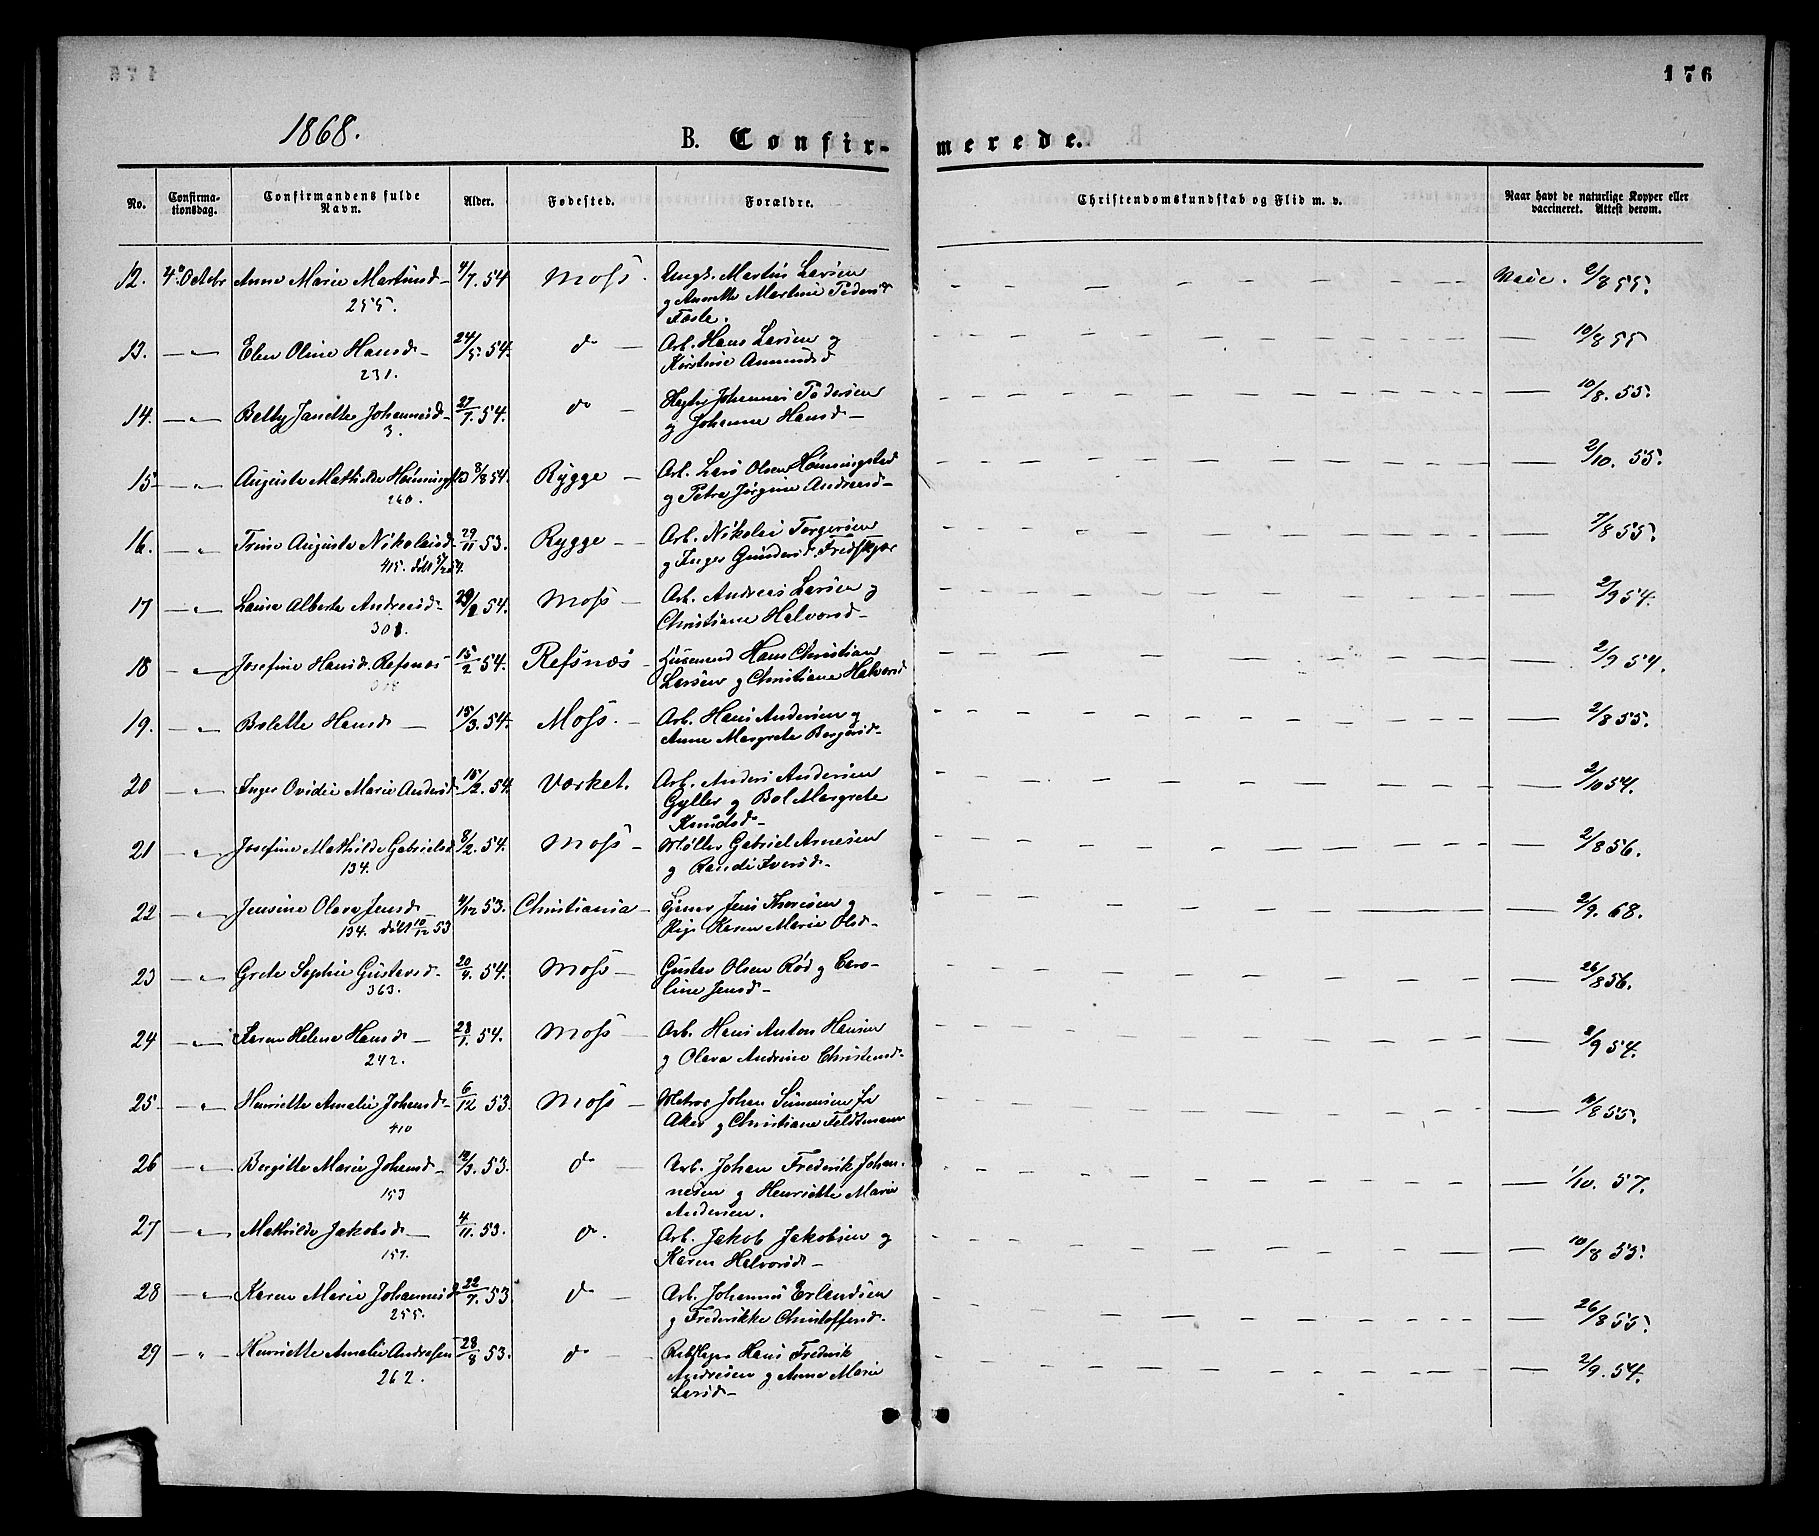 176
1868.
B. Confirmerede.
No.
Confirmationsdag.
Confirmandens fulde Navn.
Alder.
Fødested.
Forældre.
Christendomskundskab og Flid m. v.
Naar havt de naturlige Kopper eller vaccineret. Attest derom.
12. 4. Octobr Anne Marie Martinsd 4/7. 54 Moss. Martin Larsen 2/8 55.
255. og Martine Pedersd
13. — „ — Elen Oline Hansd— 24/5. 54. do — Arb. Hans Larsen og 10/8 55
231. Kirstine Amundsd
14. — „ — Betty Janette Johannesd— 27/7. 54. do — Johannes Pedersen 10/8. 55.
3. og Johanne Hansd—
15 — „ — Auguste Mathilde 8/8 54. Rygge — Arb. Lars Olsen Hønningstad 2/10. 55.
260. og Petra Jørgine Andreasd—
16. — „ — Trine Auguste Nikolaisd— 29/11 53. Rygge — Arb. Nikolai Torgersen 7/8 55.
415. døbt 5/2 54. og Inger Gundersd. Fredskjær
17 — „ — Laura Alberte Andreasd— 54. Moss — Arb. Andreas Larsen og 2/9 54.
301. Christiane Halvorsd—
18 — „ — Josefine Hansd. Refsnæs— 15/2 54. Refsnæs — Husmand Hans Christian 2/9 54.
Larsen og Christiane Halvorsd
19. — „ — Bolette Hansd — 15/3. 54. Moss. — Arb. Hans Andersen og 2/8 55.
Anne Margrete Borgersd—
20 — „ — Inger Ovidie Marie Andersd 15/2. 54. Værket. Arb. Anders Andersen 2/10 54.
Gyller og Bol Margrete
Knudsd—
21 — „ — Josefine Mathilde Gabrielsd 8/2. 54. Moss — Møller Gabriel Arnesen 2/8 56.
134. og Randi Iversd—
22 — „ — Jensine Olava Jensd 4/12 53. Christiania — Jens Thoresen og 2/9. 68.
134. døbt 10/12 53 Pige Karen Marie Olsd—
23 — „ — Grete Sophie Gustavsd— 20/4. 54. Moss — Gustav Olsen Rød og Caro- 26/8 56.
363. line Jensd—
24 — „ — Karen Helene Hansd — 28/1. 54. Moss — Arb. Hans Anton Hansen 2/9 54.
242. og Olava Andrine Christensd—
25. — „ — Henriette Amalie Johansd— 6/12 53. Moss — Matros Johan Simensen fra 10/8 55.
410 Aker og Christiane Feldtmann
26 — „ — Birgitte Marie Johansd— 12/3. 53. do — Arb. Johan Frederik Johan- 1/10. 57.
153 nesen og Henriette Marie
Andersen.
27 — „ — Mathilde Jakobsd — 4/11. 53. do. Arb. Jakob Jakobsen og 10/8 55.
157. Karen Halvorsd—
28 — „ — Karen Marie Johannesd 22/7. 53. do — Arb. Johannes Erlandsen 26/8 55.
255. og Frederikke Christoffersd.
29 — „ — Henriette Amalie Andresen 28/8 53. do — Rebslager Hans Frederik 2/9. 54.
262. Andresen og Anne Marie
Larsd—